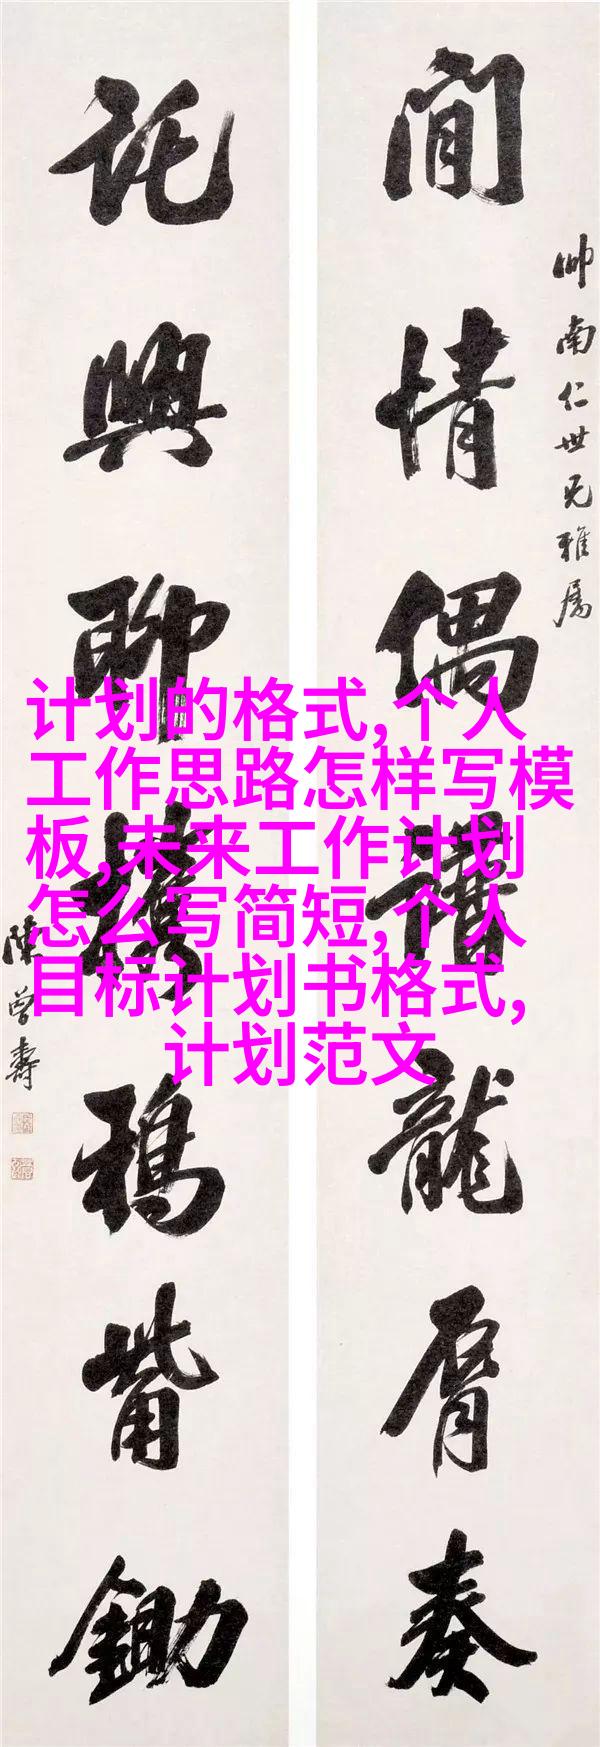 閒情偶譜龍脣奏
帥南仁世兄雅屬
託興聊攜鴉觜鋤
陳曾壽
计划的格式,个人
工作思路怎样写模
板,未来工作计划
怎么写简短,个人
目标计划书格式,
计划范文